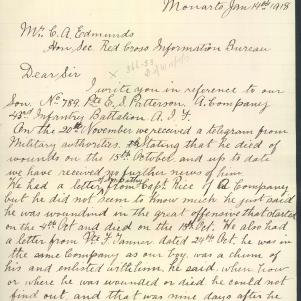 Monarto Jan 14th 1918
Mr. C. A. Edmunds
Hon, Sec. Red Cross Information Bureau
Dear Sir
I write you in reference to our
Son, No 789, Pte E. S. Patterson, A. Company
43rd Infantry Battalion A. I. F.
On the 20th November we received a telegram from
Military authorities, stating that he died of
wounds on the 15th October and up to date
we have received no further news of him,
We had a letter of sympathy from Capt. Pice of A Company
but he did not seem to know much he just said
he was wounded in the great offensive that started
on the 4th Oct and died on the 15th Oct. We also had
a letter from Pte F. Tanner dated 24th Oct, he was in
the same Company as our boy, was a chum of
his and enlisted with him, he said, when, how
or where he was wounded or died he could not
find out, and that was nine days after he